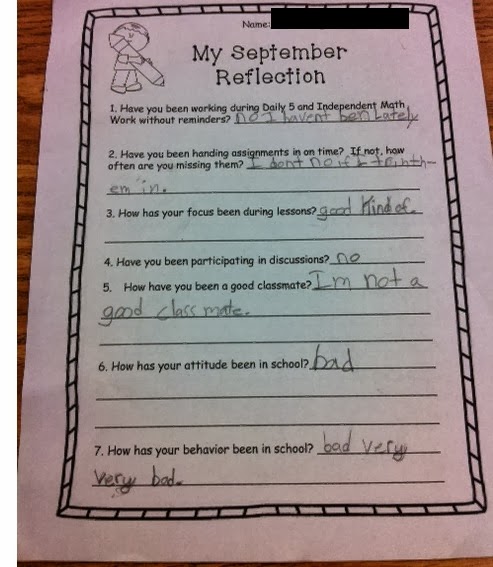 Name:
My September
Reflection
1. Have you been working during Daily 5 and Independent Math
Work without reminders? no I havent ben Lately
2. Have you been handing assignments in on time? If not, how
often are you missing them? I dont no if I
em in.
3. How has your focus been during lessons? good Kind of.
4. Have you been participating in discussions? no
5. How have you been a good classmate? I'm not a
good classmate.
6. How has your attitude been in school? bad
7. How has your behavior been in school? bad very
very bad.